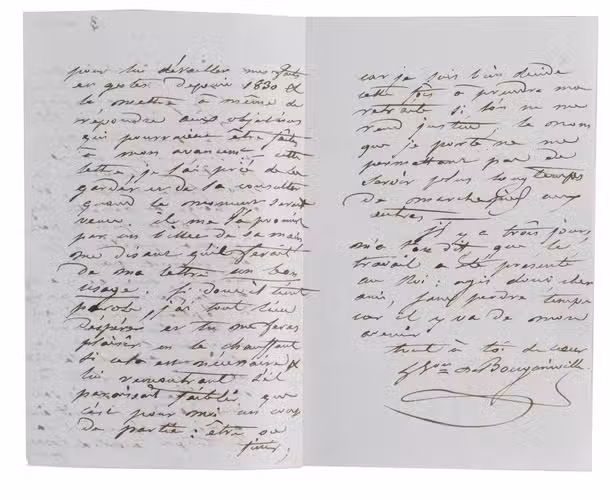 pour lui détailler mes faits
et gestes depuis 1830 et
le mettre à même de
répondre aux objections
qui pourraient être faites
à mon avancement. cette
lettre, je l'ai prié de la
garder et de la consulter
quand le moment serait
venu. il me l'a promis
par un billet de sa main
me disant qu'il ferait
de ma lettre un bon
usage. Si donc il tient
parole, j'ai tout lieu
d'espérer et tu me feras
plaisir en le chauffant
si cela est nécessaire et
lui remontrant s'il
paraissait faiblir que
c'est pour moi un coup
de partie: être ou
finir;
car je suis bien décidé
cette fois à prendre ma
retraite si l'on ne me
rend justice, le nom
que je porte ne me
permettant pas de
servir plus longtemps
de marchepied aux
autres
il y a trois jours
m'a-t-on dit que le
travail a été présenté
au Roi: agis donc cher
ami, sans perdre temps
car il y va de mon
avenir
tout à toi de cœur
Bon de Bougainville